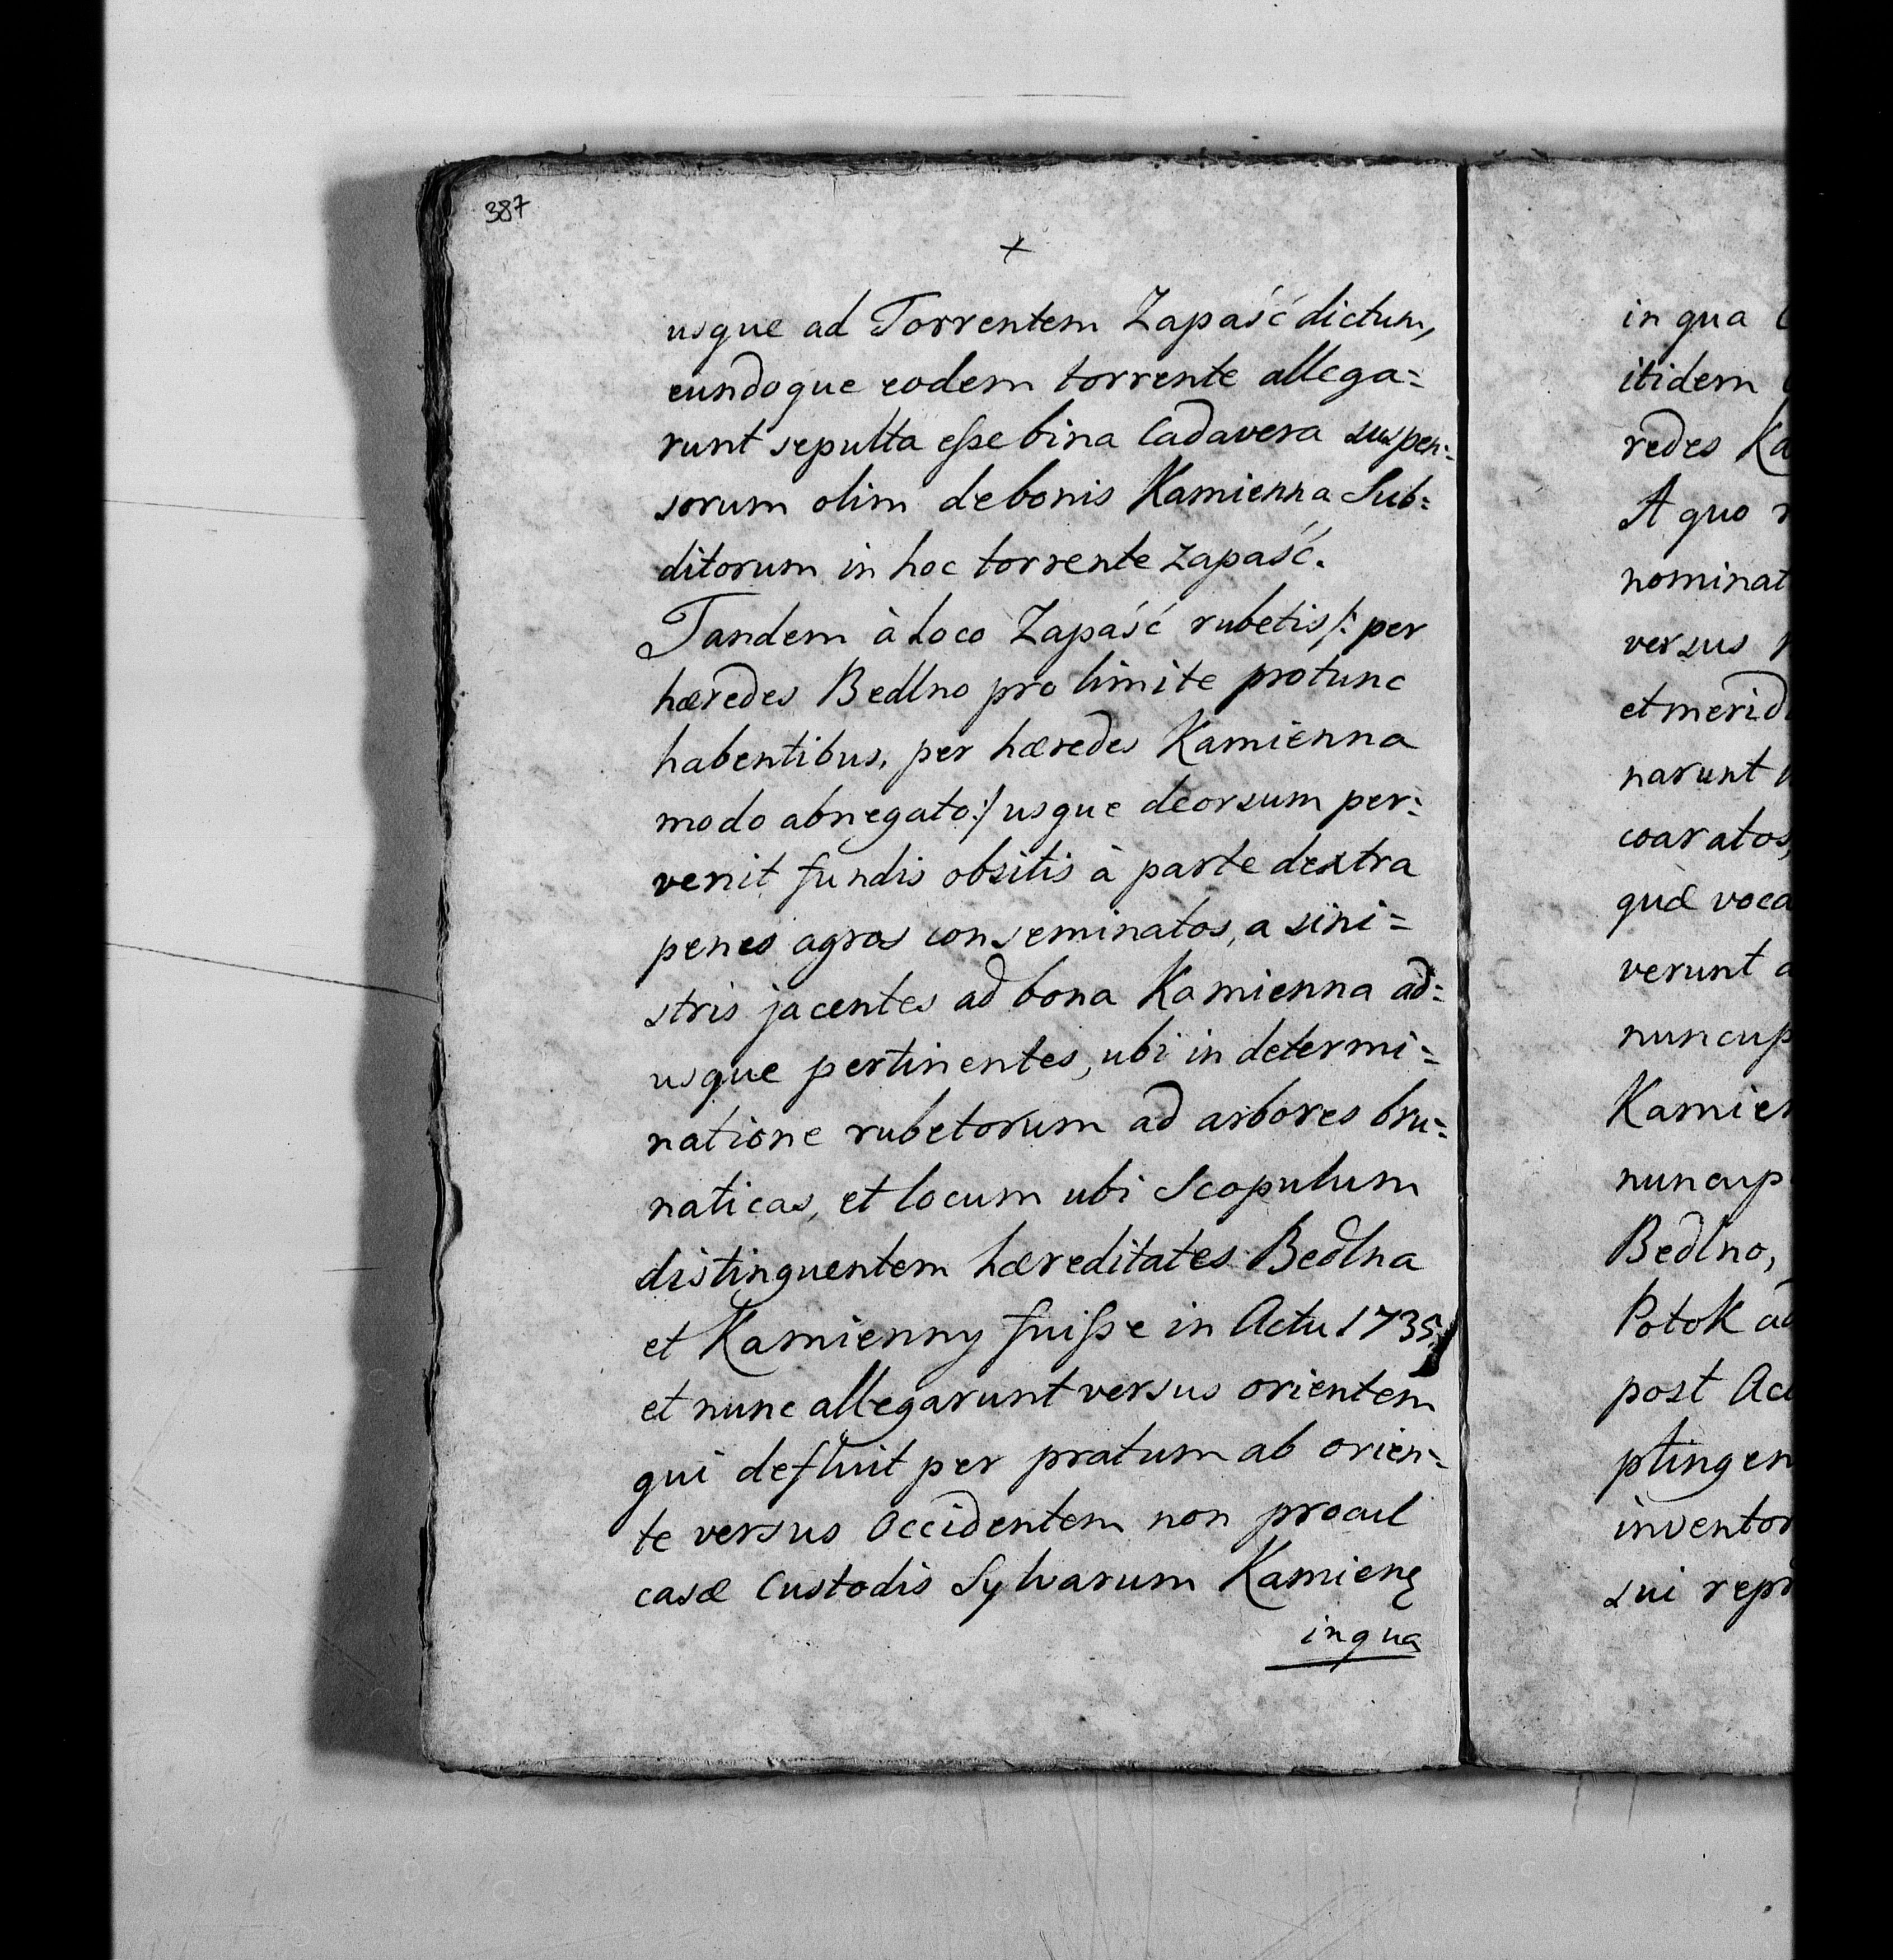 387
+
usque ad Torrentem Zapaść dictum,
eundoque eodem torrente allega=
runt sepulta eſse bina Cadavera suspen=
sorum olim de bonis Kamienna Sub=
ditorum in hoc torrente zapaść.
Tandem à Loco Zapaść rubetis /: per
hæredes Bedlno pro limite protunc
habentibus, per hæredes Kamienna
modo abnegato :/ usque deorsum per=
venit fundis obsitis à parte dextra
penes agros conseminatos, a sini=
stris jacentes ad bona Kamienna ad=
usque pertinentes, ubi in determi=
natione rubetorum ad arbores bru=
naticas, et locum ubi Scopulum
distinguentem hæreditates Bedlna
et Kamienny fuiſse in Actu 1735
et nunc allegarunt versus orientem
qui defluit per pratum ab orien=
te versus Occidentem non procul
casæ Custodis Sylvarum Kamienę
in qua
in qua
itidem
redes Ka
A quo
nominat
versus
et merid
narunt
coaratos,
quæ voca
verunt
nuncup
Kamien
nuncup
Bedlno,
Potok ad
post Act
ptingen
inventor
sui repr